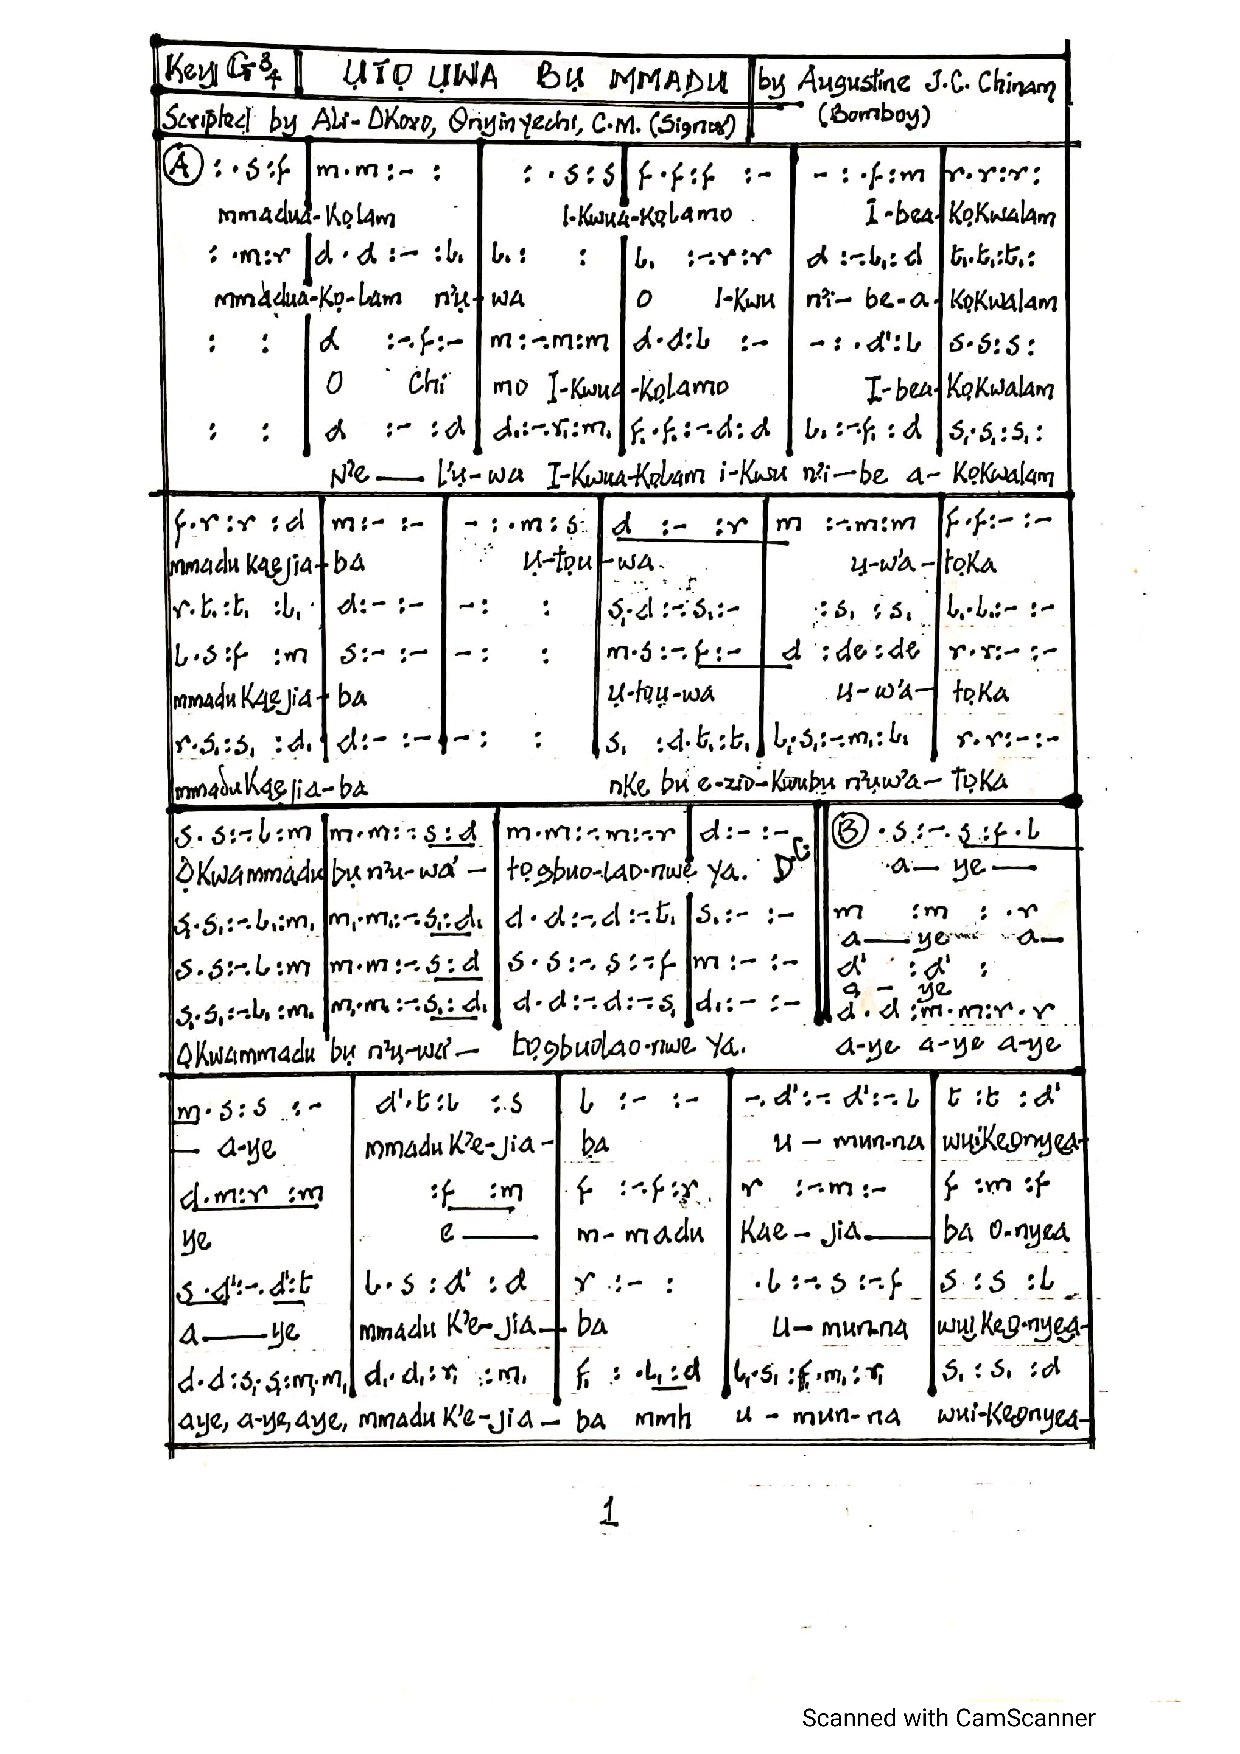 Key G 3/4 UTỌ ỤWA BỤ MMADỤ by Augustine J.C. Chinam
Scripted by Ali-Okoro, Onyinyechi, C.M. (Signor) (Bomboy)
Ⓐ : . s : f | m . m : - : | : . s : s | f . f : f : - | - : . f : m | r . r : r :
mmadua-Kọlam I-Kwua-Kọlamo I-bea-KọKwalam
: . m : r | d . d : - : l, | l, : : | l, : - . r : r | d : - . l, : d | t, . t, : t, :
mmadua-Kọ-Lam n'ụ-wa O I-Kwu n'i-be-a-KọKwalam
: : | d : - . f : - | m : - . m : m | d . d : l : - | - : . d' : l | s . s : s :
O Chi mo I-Kwua-Kọlamo I-bea-KọKwalam
: : | d : - : d | d, : - . r, : m, | f, . f, : - . d : d | l, : - . f, : d | s, . s, : s, :
N'e — l'ụ-wa I-Kwua-Kọlam i-Kwu n'i-be a-KọKwalam
f . r : r : d | m : - : - | - : . m : s | d : - : r | m : - . m : m | f . f : - : -
mmadu Kaejia-ba Ụ-tọụ-wa ụ-w'a-tọKa
r . t, : t, : l, | d : - : - | - : : | s, . d : - . s, : - | : s, : s, | l, . l, : - : -
l . s : f : m | s : - : - | - : : | m . s : - . f : - | d : de : de | r . r : - : -
mmadu Kaejia-ba Ụ-tọụ-wa u-w'a-tọKa
r . s, : s, : d, | d : - : - | - : : | s, : d . t, : t, | l, . s, : - . m, : l, | r . r : - : -
mmadu Kaejia-ba nKe bu e-zio-Kwubu n'ụw'a-TọKa
s . s : - . l : m | m . m : - . s : d | m . m : - . m : - . r | d : - : - D.C Ⓑ . s : - . s : f . l
ỌKwammadu bụ n'u-wa'- tọgbuo-lao-nwe ya. a — ye —
s, . s, : - . l, : m, | m, . m, : - . s, : d, | d . d : - . d : - . t, | s, : - : - m : m : . r
a — ye a —
s . s : - . l : m | m . m : - . s : d | s . s : - . s : - . f | m : - : - d' : d' :
a - ye
s, . s, : - . l, : m, | m, . m, : - . s, : d, | d . d : - . d : - . s, | d, : - : - d . d : m . m : r . r
ỌKwammadu bụ n'ụ-wa'- tọgbuolao-nwe ya. a-ye a-ye a-ye
m . s : s : - | d' . t : l : s | l : - : - | - . d' : - . d' : - . l | t : t : d'
— a-ye mmadu K'e-jia-ba u - mun-na wuiKeọnyea-
d . m : r : m | : f : m | f : - . f : r | r : - . m : - | f : m : f
ye e — m-madu Kae-jia — ba o-nyea
s . d' : - . d' : t | l . s : d' : d | r : - : | . l : - . s : - . f | s : s : l
a — ye mmadu K'e-jia-ba u-mun-na wuiKeọ-nyea-
d . d : s, . s, : m, . m, | d, . d, : r, : m, | f, : . l, : d | l, . s, : f, . m, : r, | s, : s, : d
aye, a-ye, aye, mmadu K'e-jia-ba mmh u - mun-na wui-Keọnyea-
1
Scanned with CamScanner